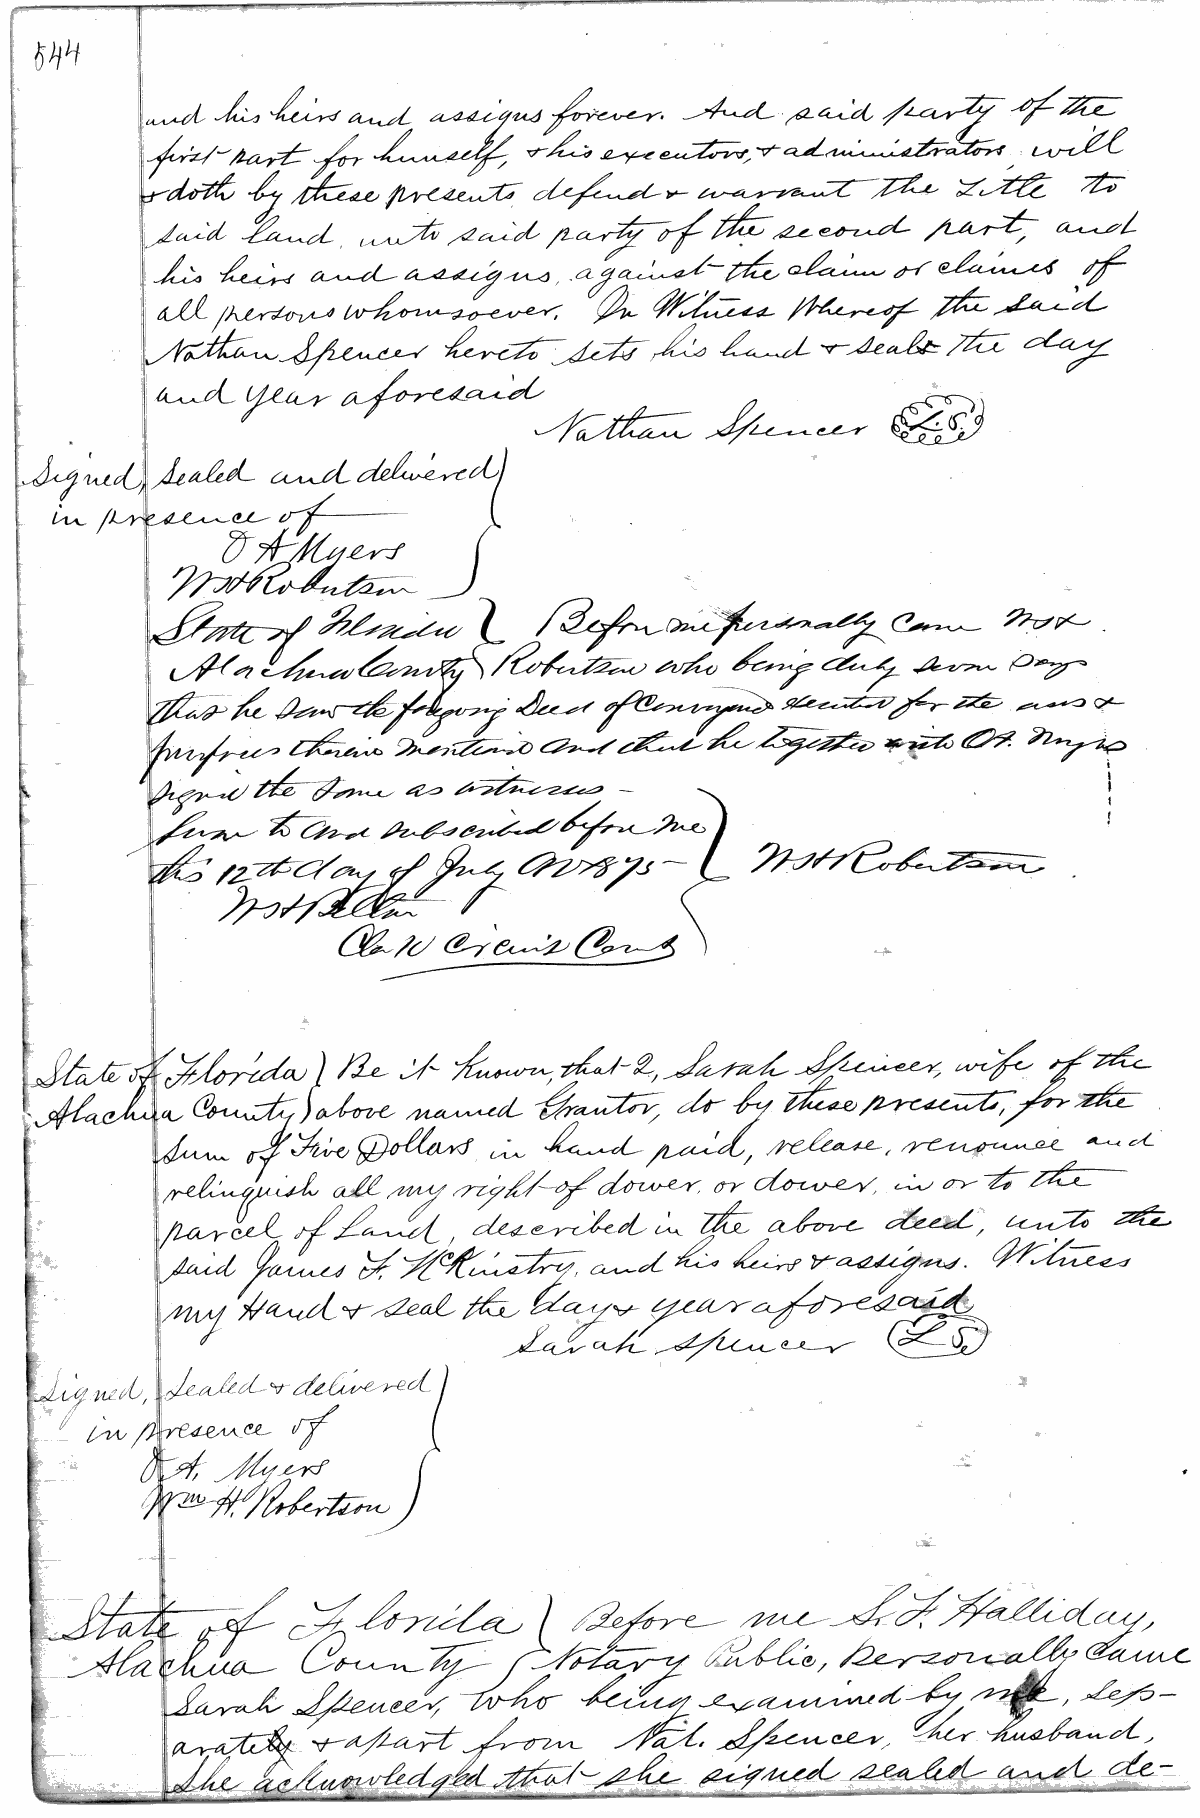 544
and his heirs and assigns forever. And said party of the
first part for himself, & his executors, & administrators will
& doth by these presents defend & warrant the Title to
said land, unto said party of the second part, and
his heirs and assigns, against the claim or claims of
all persons whomsoever. In Witness Whereof the said
Nathan Spencer hereto sets his hand & seal the day
and year aforesaid
Nathan Spencer L.S.
Signed, sealed and delivered
in presence of
O A Myers
Wm H Robertson
State of Florida } Before me personally came Wm H
Alachua County } Robertson who being duly sworn says
that he saw the foregoing Deed of Conveyance executed for the uses &
purposes therein mentioned and that he together with O A. Myers
signed the same as witnesses –
Sworn to and subscribed before me
this 12th day of July AD 1875 – Wm H Robertson
Wm H Belton
Clerk Circuit Court
State of Florida ) Be it Known, that I, Sarah Spencer, wife of the
Alachua County ) above named Grantor, do by these presents, for the
sum of Five Dollars in hand paid, release, renounce and
relinquish all my right of dower, or dower, in or to the
parcel of Land, described in the above deed, unto the
said James F. McKinstry, and his heirs & assigns. Witness
my Hand & seal the day & year aforesaid
Sarah Spencer L S.
Signed, sealed & delivered
in presence of
O A. Myers
Wm H. Robertson
State of Florida ) Before me S. F. Halliday,
Alachua County ) Notary Public, Personally Came
Sarah Spencer, who being examined by me, sep-
arately & apart from Nat. Spencer, her husband,
She acknowledged that she signed sealed and de-